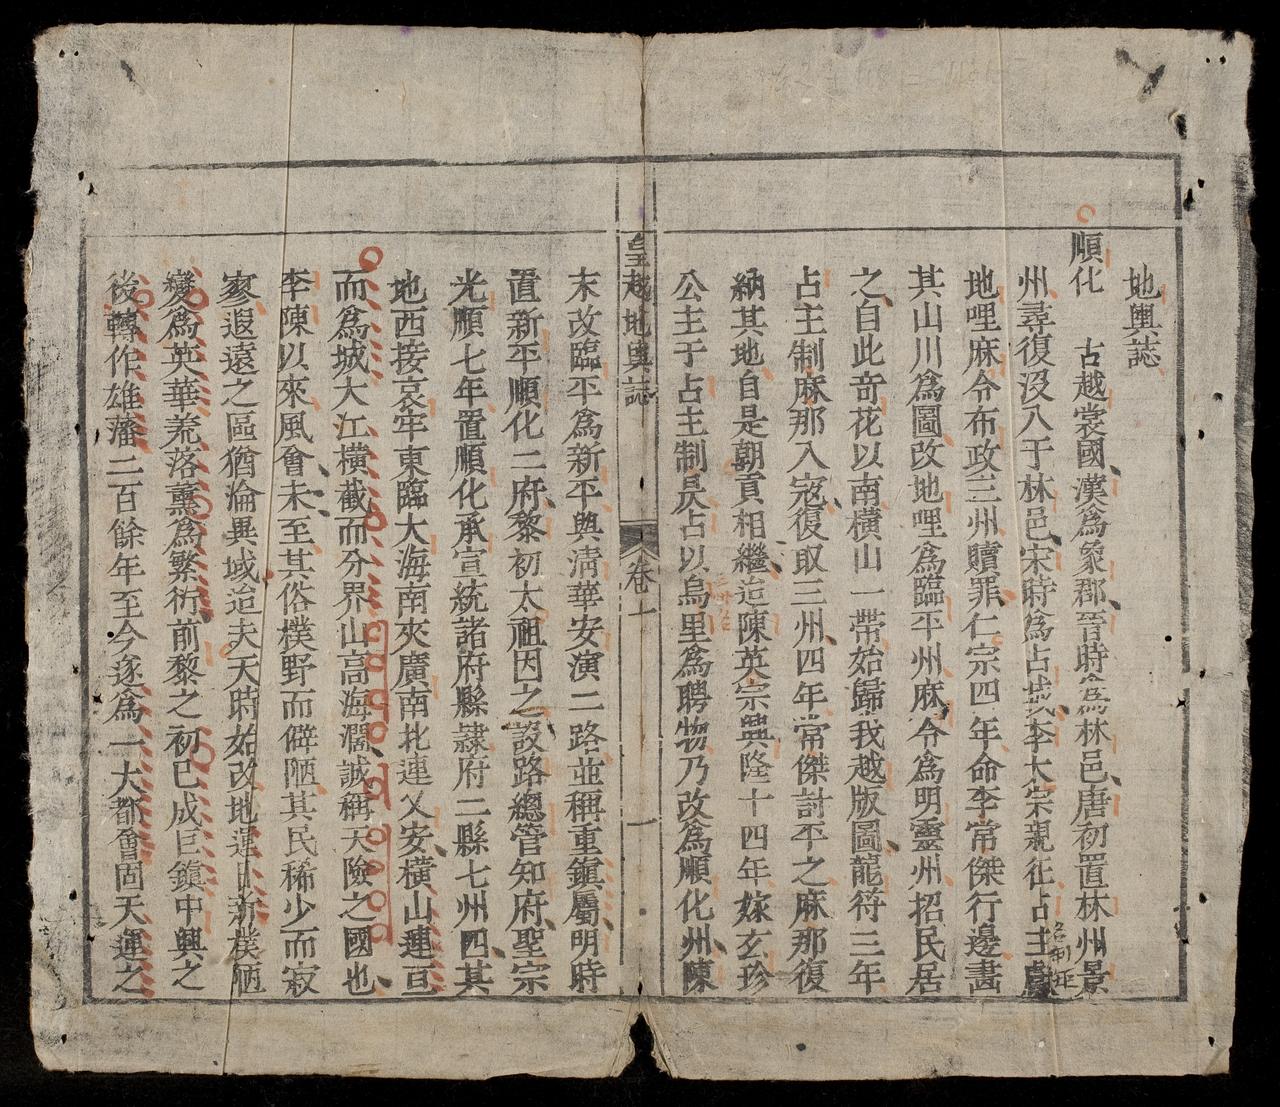 地輿誌
順化　古越裳國漢爲象郡晉時爲林邑唐初置林州景
州尋復没入于林邑宋時爲占城李太宗親征占主獻
地哩麻令布政三州贖罪仁宗四年命李常傑行邊畵
其山川爲圖改地哩爲臨平州麻令爲明靈州招民居
之自此奇花以南橫山一帶始歸我越版圖龍符三年
占主制麻那入寇復取三州四年常傑討平之麻那復
納其地自是朝貢相繼迨陳英宗興隆十四年嫁玄珍
公主于占主制旻占以烏里爲聘物乃改爲順化州陳
皇越地輿誌　卷一　一
末改臨平爲新平與淸華安演二路並稱重鎮屬明時
置新平順化二府黎初太祖因之設路總管知府聖宗
光順七年置順化承宣統諸府縣隷府二縣七州四其
地西接哀牢東臨大海南夾廣南北連乂安橫山連亘
而爲城大江橫截而分界山高海濶誠稱天險之國也
李陳以來風會未至其俗樸野而僻陋其民稀少而寂
寥遐遠之區猶淪異域迨夫天時始改地運日新樸陋
變爲英華荒落薰爲繁衍前黎之初已成巨鎮中興之
後轉作雄藩二百餘年至今遂爲一大都會固天運之